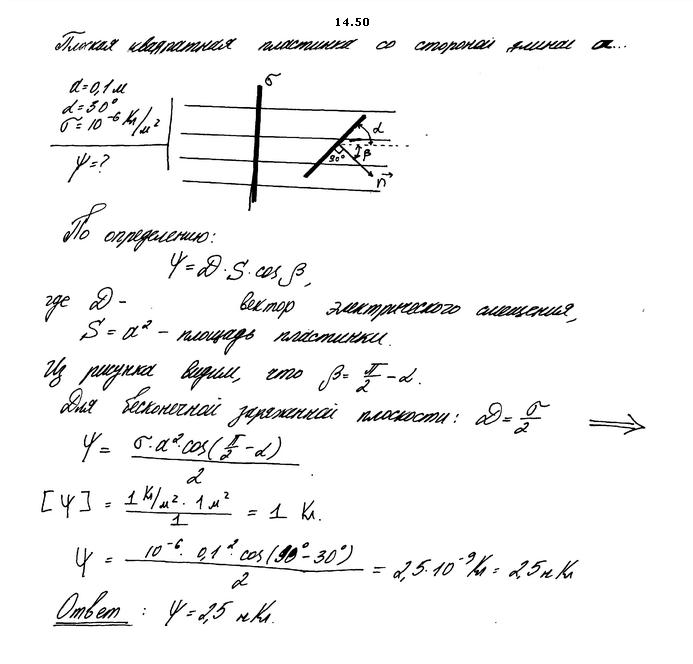 14.50
Плоская квадратная пластинка со стороной длиной a...
a=0,1 м
α=30°
σ=10⁻⁶ Кл/м²
Ψ=?
σ
α
90°
β
n⃗
По определению:
Ψ=D·S·cos β,
где D - вектор электрического смещения,
S = a² - площадь пластинки.
Из рисунка видим, что β = π/2 - α.
Для бесконечной заряженной плоскости: D = σ/2 ⟹
Ψ = σ·a²·cos(π/2 - α)/2
[Ψ] = 1 Кл/м² · 1 м²/1 = 1 Кл.
Ψ = 10⁻⁶ · 0,1² · cos(90° - 30°)/2 = 2,5·10⁻⁹ Кл = 2,5 нКл
Ответ: Ψ = 2,5 нКл.